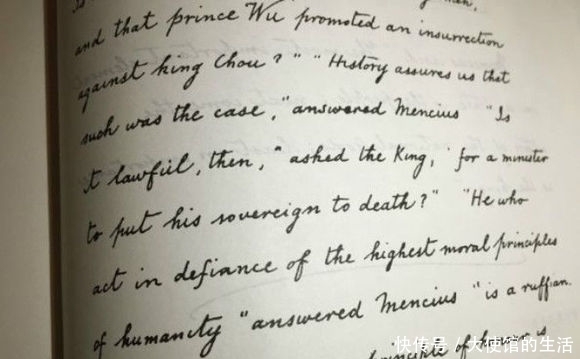 and that prince Wu promoted an insurrection
against king Chou?" "History assures us that
such was the case," answered Mencius "Is
it lawful, then," asked the King, "for a minister
to put his sovereign to death?" "He who
act in defiance of the highest moral principles
of humanity" answered Mencius "is a ruffian.
principle of honor is
快传号/大使馆的生活